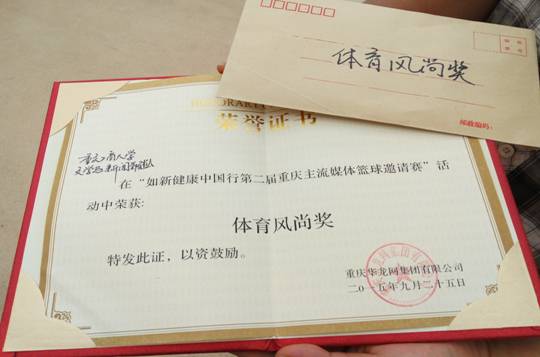 体育风尚奖
邮政编码:
荣誉证书
重庆工商大学
文学与新闻学院队
在“如新健康中国行第二届重庆主流媒体篮球邀请赛”活
动中荣获:
体育风尚奖
特发此证,以资鼓励。
重庆华龙网集团有限公司
二〇一五年九月二十五日